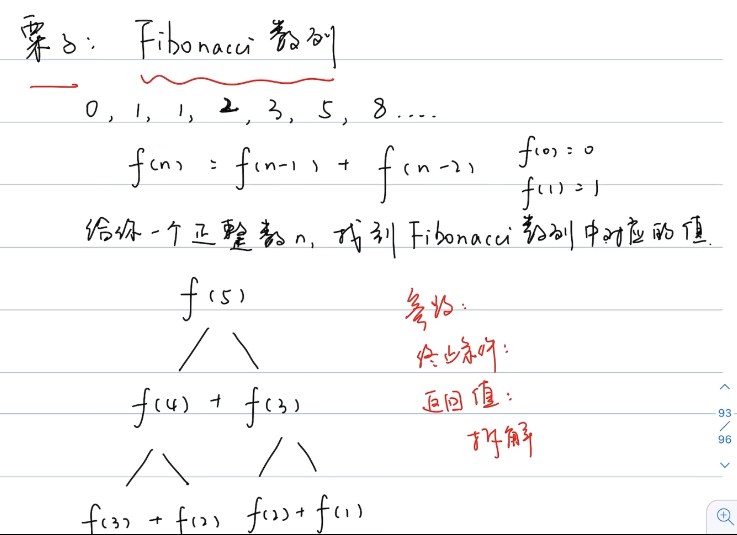 栗子: Fibonacci 数列
0, 1, 1, 2, 3, 5, 8 ....
f(n) = f(n-1) + f(n-2)
f(0) = 0
f(1) = 1
给你一个正整数n, 找到 Fibonacci 数列中对应的值.
f(5)
f(4) + f(3)
f(3) + f(2) f(2) + f(1)
参数:
终止条件:
返回值:
拆解
93
96